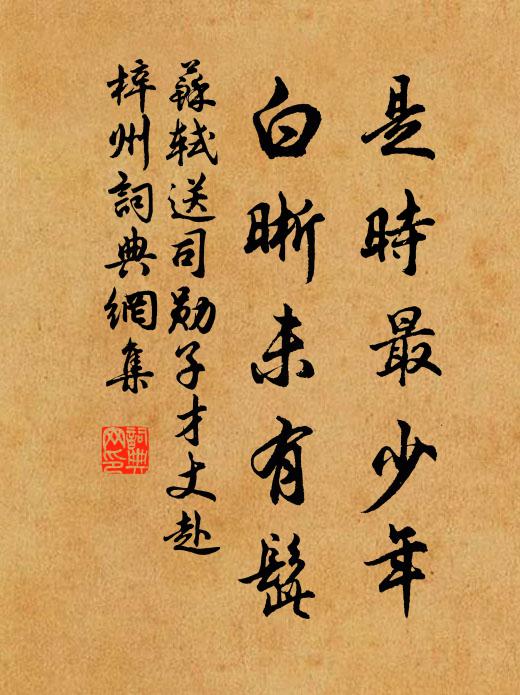 是時最少年
白晰未有髭
蘇軾送司勛子才丈赴
梓州詞典網集
詞典
网印